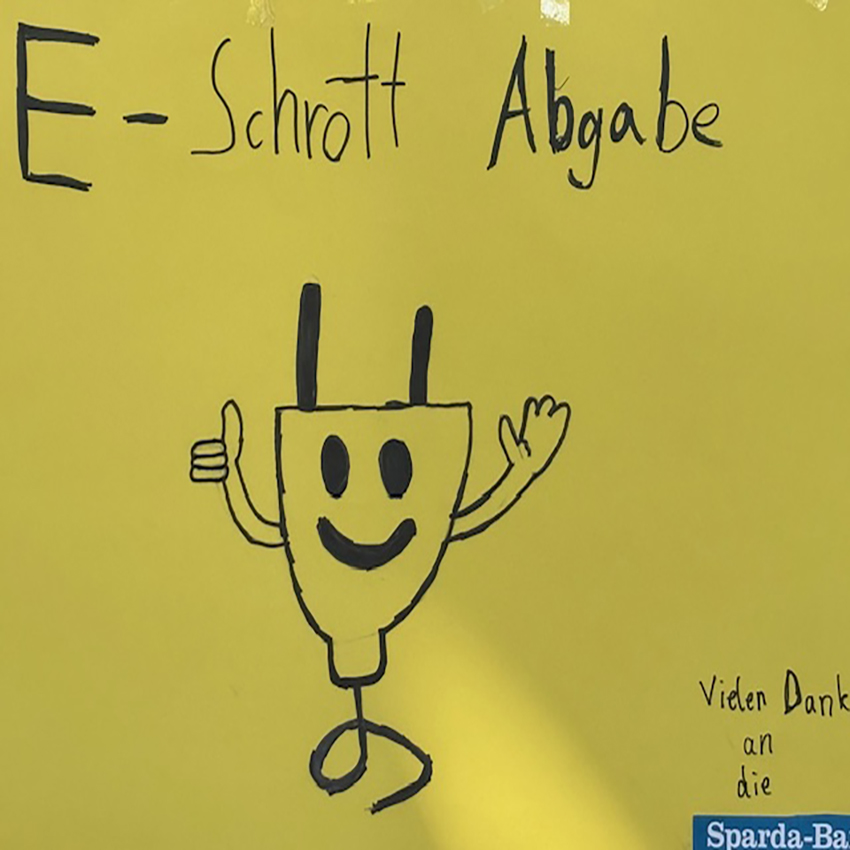 E - Schrott Abgabe
Vielen Dank
an
die
Sparda-Ba